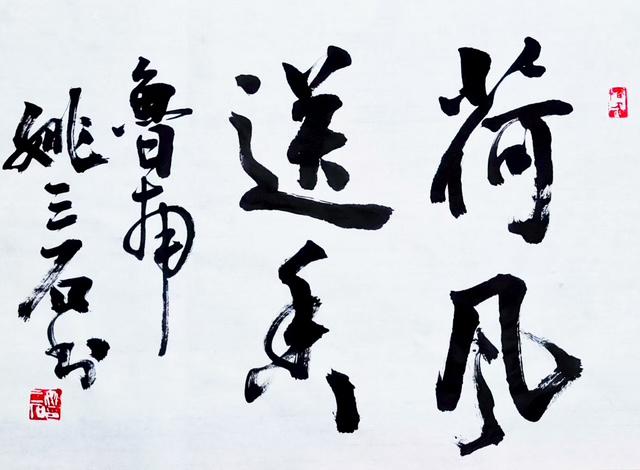 荷风
送香
魯南
姚三石书